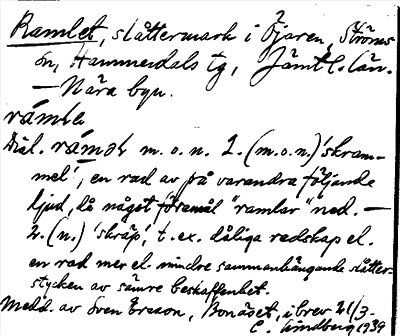 Ramlet, slåttermark i Öjaren, Ströms
sn, Hammerdals tg, Jämtl. län.
— Nära byn.
rámle
Dial. ráməl m. o. n. 1. (m. o. n.) 'skram-
mel', en rad av på varandra följande
ljud, då något föremål "ramlar" ned. —
2. (n.) 'skräp', t. ex. dåliga redskap el.
en rad mer el. mindre sammanhängande slåtter-
stycken av sämre beskaffenhet.
Medd. av Sven Ersson, Bonäset, i brev 21/3-
E. Lindberg 1939